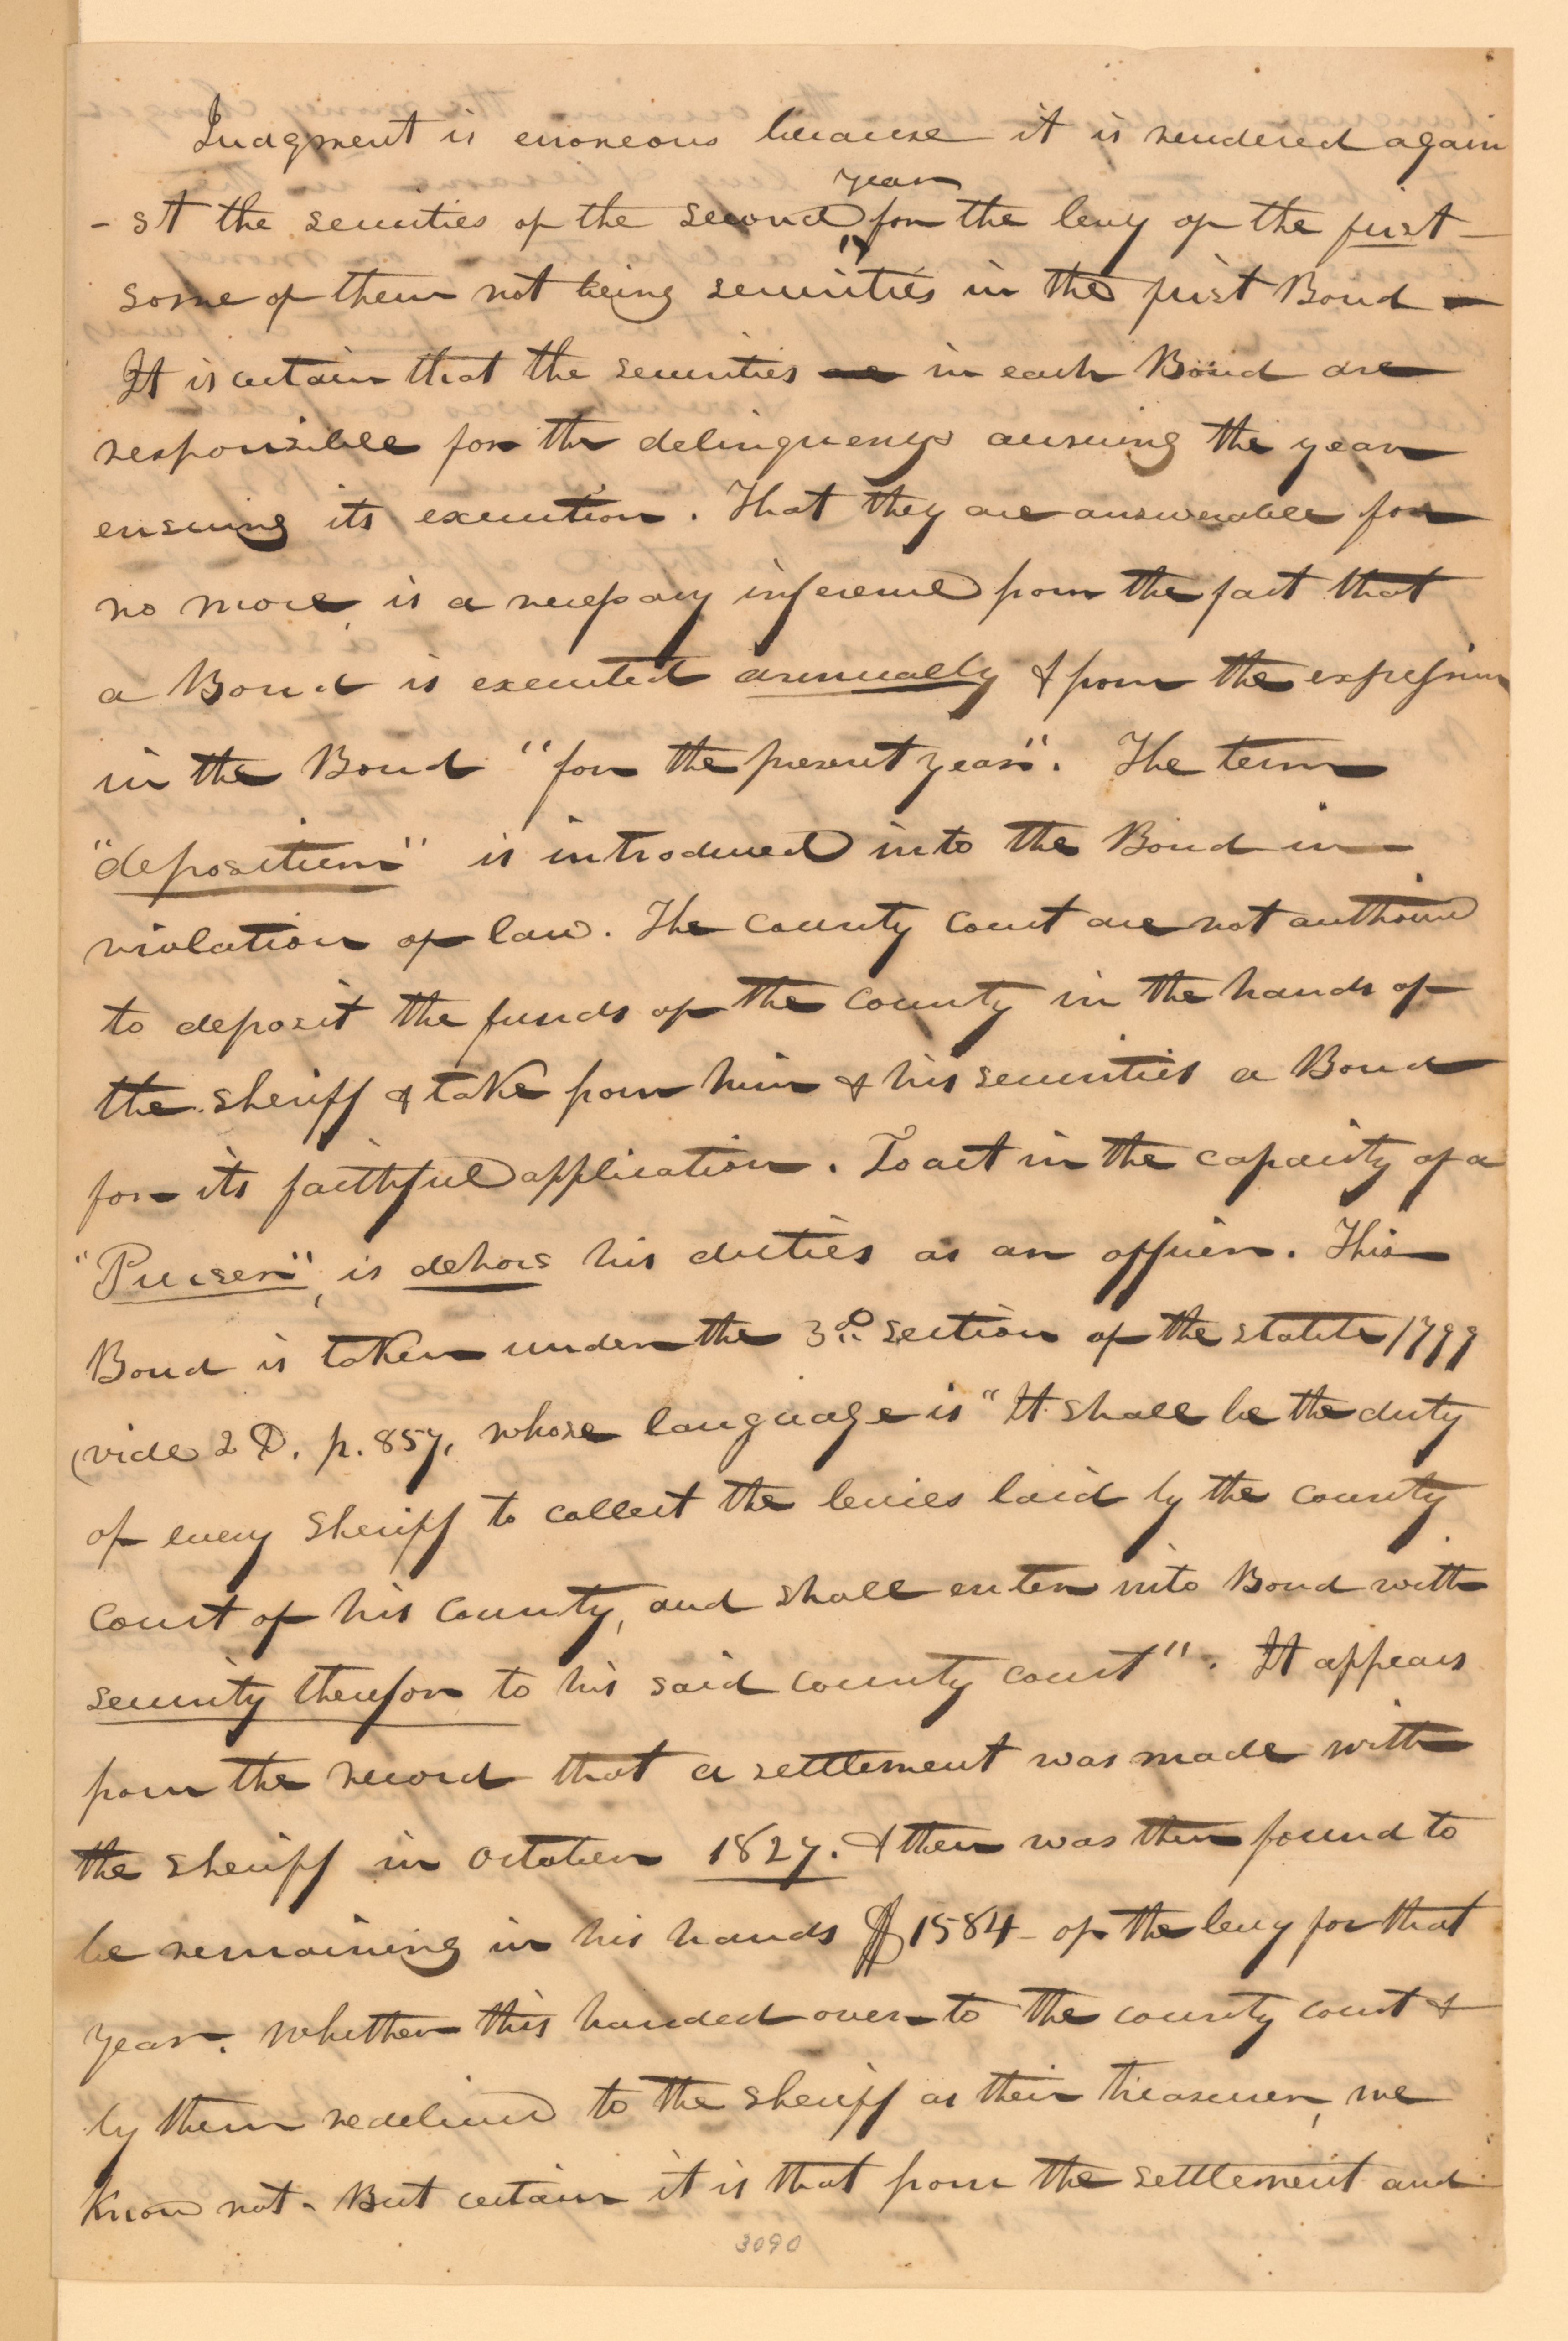 Judgment is erroneous because it is rendered again
- st the securities of the second year for the levy of the first —
some of them not being securities in the first Bond —
It is certain that the securities are in each Bond are
responsible for the delinquencys accruing the year
ensuing its execution. That they are answerable for
no more, is a necessary inference from the fact that
a Bond is executed annually & from the expression
in the Bond "for the present year". The term
"depositum" is introduced into the Bond in
violation of law. The county court are not authorised
to deposit the funds of the county in the hands of
the sheriff & take from him & his securities a Bond
for its faithful application. To act in the capacity of a
"Purser", is dehors his duties as an officer. This
Bond is taken under the 3d. section of the statute 1799
(vide 2 D. p. 857, whose language is "It shall be the duty
of every Sheriff to collect the levies laid by the county
court of his county, and shall enter into Bond with
security therefor to his said county court". It appears
from the record that a settlement was made with
the sheriff in October 1827. & ther was then found to
be remaining in his hands $1584 - of the levy for that
year. whether this handed over to the county court &
by them redelivered to the sheriff as their treasurer, we
know not. But certain it is that from the settlement and
3090